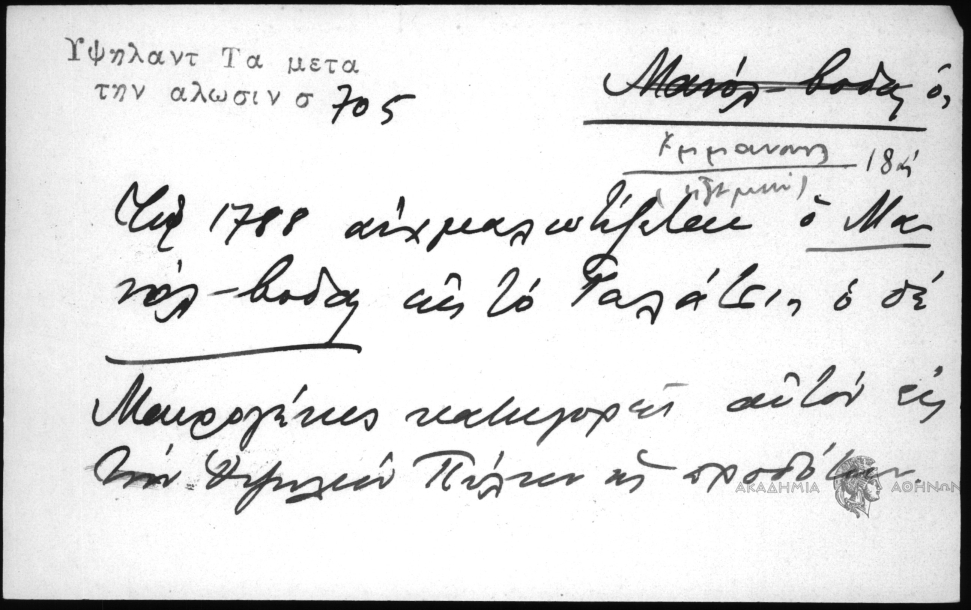 Υψηλαντ Τα μετα
την αλωσιν σ 705
Μανόλ-βοδας ὁ,
Εμμανουηλ 18 ή
Τῷ 1788 αἰχμαλωτίζεται ὁ Μα-
νόλ-βοδας εἰς τό Γαλάτσι, ὁ δέ
Μαυρογένης κατηγορεῖ αὐτόν εἰς
τήν Ὑψηλήν Πύλην ὡς προδότην.
ΑΚΑΔΗΜΙΑ ΑΘΗΝΩΝ